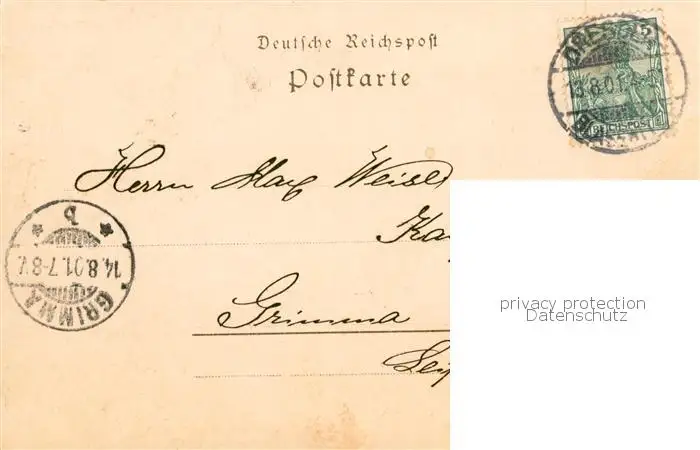 Deutsche Reichspost
Postkarte
DRESDEN
13.8.01.
REICHSPOST
Herrn Max
Grimma
b
14.8.01.7-8V.
GRIMMA
privacy protection
Datenschutz